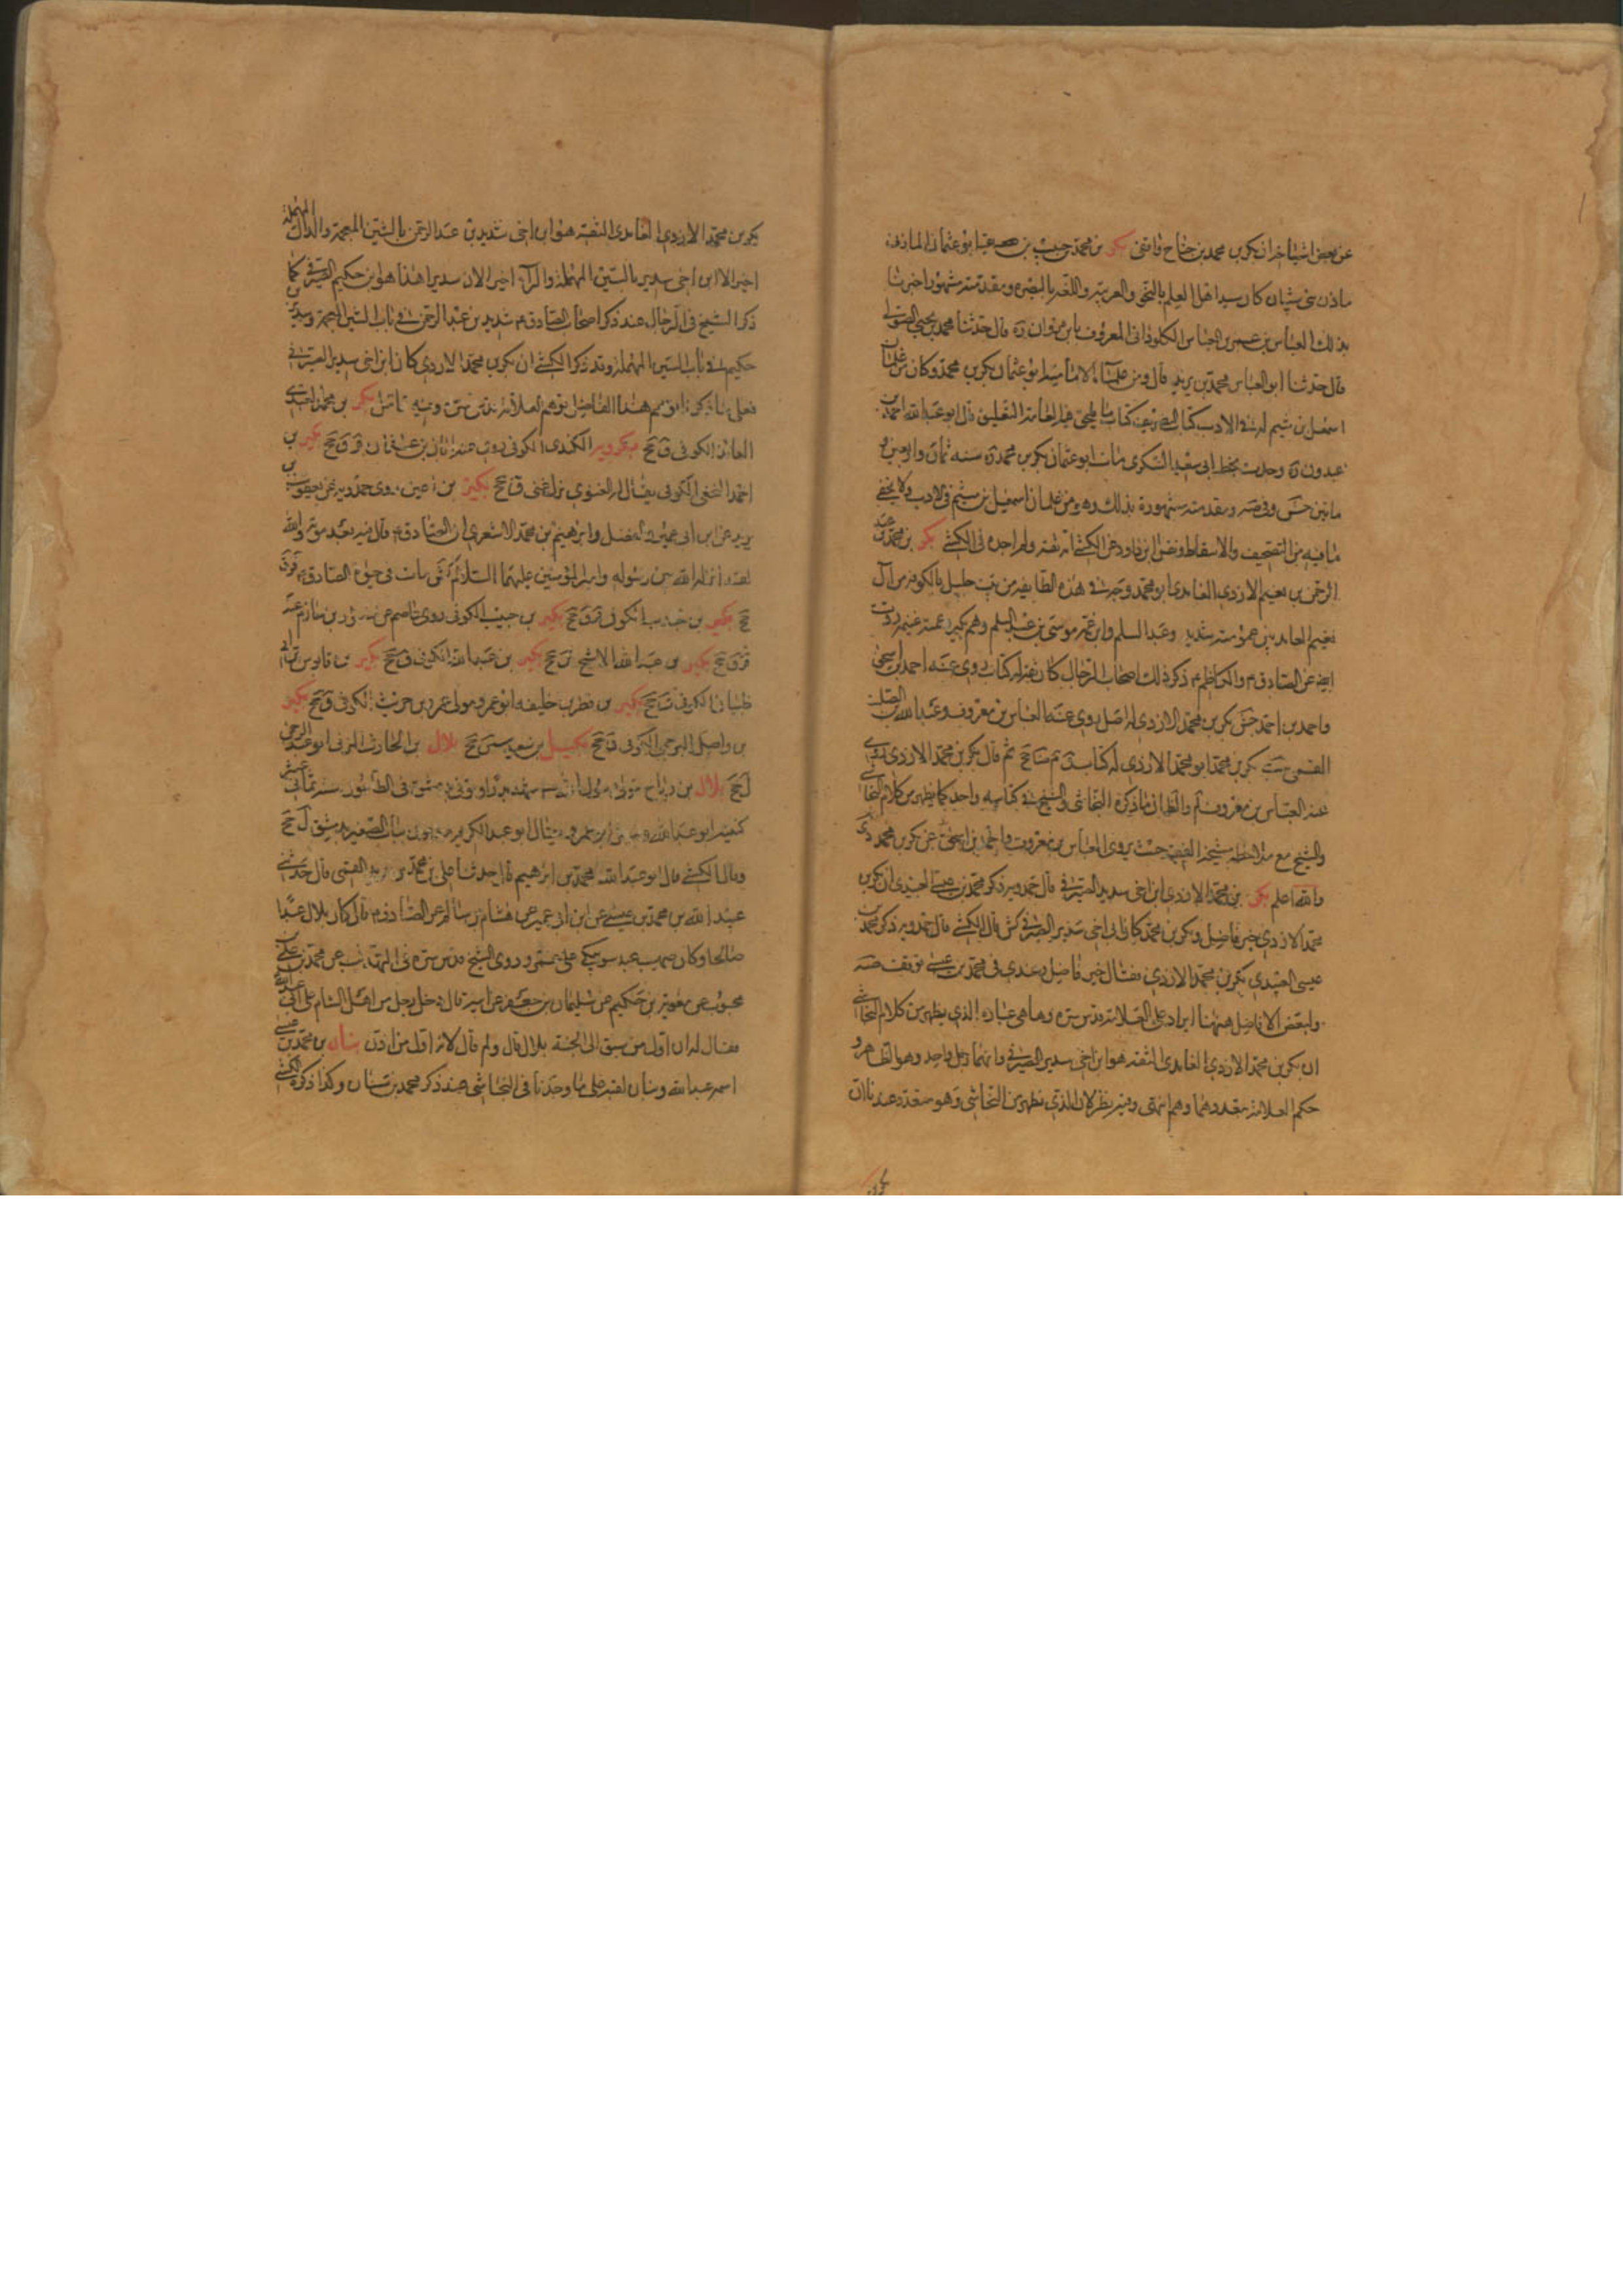 عن بعض اشياخه ان بكر بن محمد بن جناح واقفى بكر بن محمد بن حبيب بن بقية ابو عثمان المازنى
مازن بنى شيبان كان سيد اهل العلم بالنحو والعربية واللغة بالبصرة ومقدمته مشهور اخبرنا
بذلك العباس بن عمر بن العباس الكلوذانى المعروف بابن مروان ره قال حدثنا محمد بن يحيى الصولى
قال حدثنا ابو العباس محمد بن يزيد قال ومن علماء الامامية ابو عثمان بكر بن محمد وكان من غلمان
اسمعيل بن ميثم له فى الادب كتاب التصريف كتاب ما يلحن فيه العامة التعليق قال ابو عبدالله احمد بن
عبدون ره وجدت بخط ابى سعيد السكرى مات ابو عثمان بكر بن محمد ره سنه ثمان واربعين و
مأتين جش وفى صه ومقدمته مشهورة بذلك وهو من غلمان اسمعيل بن ميثم فى الادب ولا يخفى
ما فيه من التصحيف والاسقاط ونقل ابن داود عن الكشى انه ثقه ولم اجده فى الكشى بكر بن محمد بن عبد
الرحمن بن نعيم الازدى الغامدى ابو محمد وجه فى هذه الطايفه من بيت جليل بالكوفه من آل
نعيم الغامديين عمومته شديد وعبد السلم وابن عمه موسى بن عبد السلم وهم كثير وعمته غنيمه روت
ايضا عن الصادق ع والكاظم ع ذكر ذلك اصحاب الرجال كان ثقه له كتاب روى عنه احمد بن اسحق
واحمد بن احمد جش بكر بن محمد الازدى له اصل روى عنه العباس بن معروف وعبد الله بن الصلت
القمى ست بكر بن محمد ابو محمد الازدى له كتاب ق م ضا جخ ثم قال بكر بن محمد الازدى روى
عنه العباس بن معروف لم والظاهر ان ما ذكره النجاشى والشيخ فى كتابيه واحد كما يظهر من كلام النجاشى
والشيخ مع مشيخة الفقيه حيث يروى العباس بن معروف واحمد بن اسحق عن بكر بن محمد الازدى
والله اعلم بكر بن محمد الازدى ابن اخى سدير الصيرفى قال حمدويه ذكر محمد بن عيسى العبيدى ان بكر بن
محمد الازدى خير فاضل وبكر بن محمد كان ابن اخى سدير الصيرفى كش قال الكشى قال حمدويه ذكر محمد بن
عيسى العبيدى بكر بن محمد الازدى فقال خير فاضل وعندى فى محمد بن عيسى توقف صه
ولبعض الافاضل ههنا ايراد على العلامة قدس سره وها هى عبارته الذى يظهر من كلام النجاشى
ان بكر بن محمد الازدى الغامدى الثقه هو ابن اخى سدير الصيرفى وانهما رجل واحد وهو الظاهر و
حكم العلامة بتعددهما وهم انتهى وفيه نظر لان الذى يظهر من النجاشى وهو معتمد عندنا ان
بكر بن
بكر بن محمد الازدى الغامدى الثقة هو ابن اخى شديد بن عبد الرحمن بالشين المعجمة والدال المهملة
اخيرا لا ابن اخى سدير بالسين المهملة والراء اخيرا لان سديرا هذا هو ابن حكيم الصيرفى كما
ذكر الشيخ فى الرجال عند ذكر اصحاب الصادق ع شديد بن عبد الرحمن فى باب الشين المعجمة وسدير بن
حكيم فى باب السين المهملة وقد ذكر الكشى ان بكر بن محمد الازدى كان ابن اخى سدير الصيرفى
فعلى ما ذكرنا توهم هذا الفاضل توهم العلامة قدس سره وفيه تامل بكر بن محمد العبدى
العابد الكوفى ق جخ بكرويه الكندى الكوفى روى عنه ابان بن عثمان قر ق جخ بكير بن
احمد النخعى الكوفى يقال له الغنوى نزل غنى ق جخ بكير بن اعين روى حمدويه عن يعقوب بن
يزيد عن ابن ابى عمير عن الفضل وابرهيم بن محمد الاشعرى ان الصادق ع قال فيه بعد موته والله
لقد انزله الله بين رسوله وامير المؤمنين عليهما السلام كش مات فى حيوة الصادق ع قر ق
جخ بكير بن جندب الكوفى قر ق جخ بكير بن حبيب الكوفى روى عاصم عن منصور بن حازم عنه
قر ق جخ بكير بن عبد الله الاشج ق جخ بكير بن عبدالله الكوفى ق جخ بكير بن قابوس بن ابى
ظبيان الكوفى ق جخ بكير بن قطر بن خليفه ابو عمرو مولى عمرو بن حريث الكوفى ق جخ بكير
بن واصل البرجمى الكوفى ق جخ بكيل بن سعيد سين جخ بلال بن الحارث المزنى ابو عبد الرحمن
ل جخ بلال بن رباح مولى رسول الله ص شهد بدرا وتوفى بدمشق فى الطاعون سنة ثمانى عشر
كنيته ابو عبدالله وقيل ابو عمرو ويقال ابو عبد الكريم وهو مدفون بباب الصغير بدمشق ل جخ
وقال الكشى قال ابو عبد الله محمد بن ابرهيم قال حدثنا على بن محمد بن يزيد القمى قال حدثنى
عبد الله بن محمد بن عيسى عن ابن ابى عمير عن هشام بن سالم عن الصادق ع قال كان بلال عبدا
صالحا وكان صهيب عبد سوء يبكى على عمر وروى الشيخ قدس سره فى التهذيب عن محمد بن على بن
محبوب عن معوية بن حكيم عن سليمان بن جعفر عن ابيه قال دخل رجل من اهل الشام على ابى عبدالله
فقال له ان اول من سبق الى الجنة بلال قال ولم قال لانه اول من اذن بنان بن محمد بن عيسى
اسمه عبدالله وبنان لقبه على ما وجدنا فى النجاشى عند ذكر محمد بن سنان وكذا ذكره الكشى